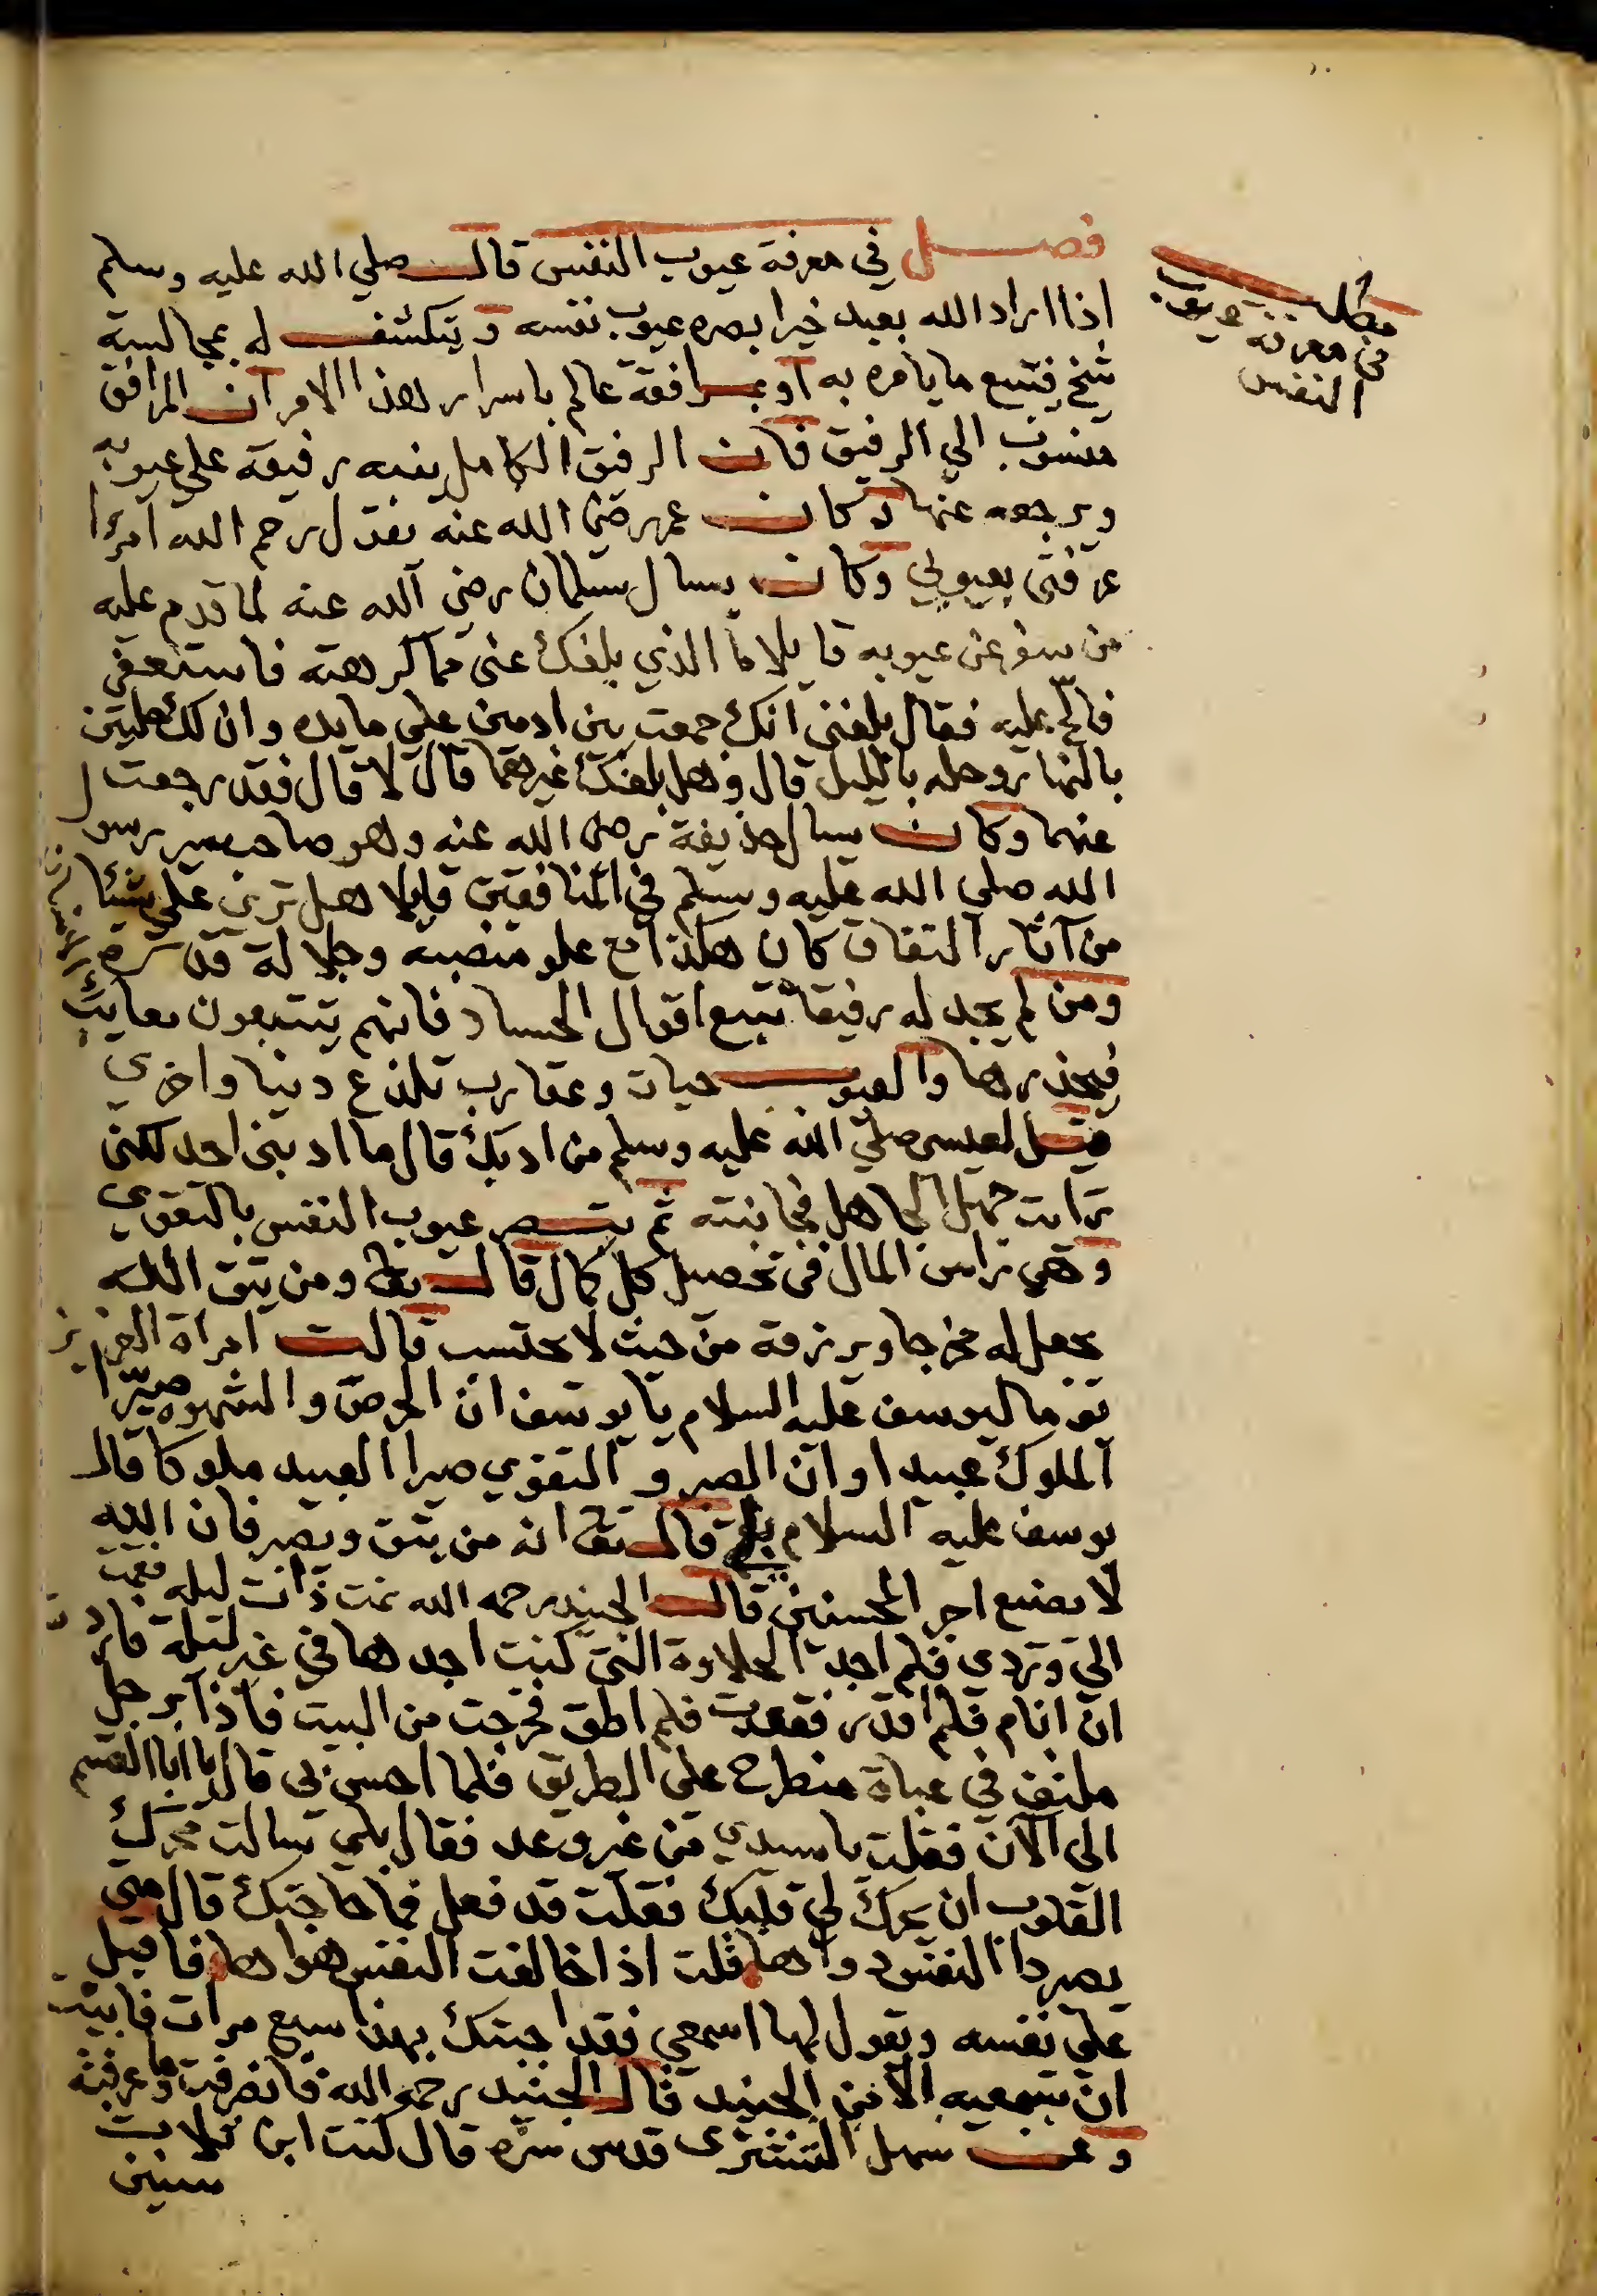 فصل في معرفة عيوب النفس قال صلي الله عليه وسلم
اذا اراد الله بعبد خيرا بصره عيوب نفسه و يتكشف له بمجالسة
شيخ فيتبع ما يامره به او بمرافقة عالم باسرار هذا الامر ان المرافق
منسوب الي الرفيق فان الرفيق الكامل ينبه رفيقه علي عيوبه
ويرجعه عنها وكان عمر رضي الله عنه يقول رحم الله امرئا
عرفني بعيوبي وكان يسال سلمان رضي الله عنه لما قدم عليه
من سفر عن عيوبه قايلا ما الذي بلغك عني مما كرهته فاستعفي
فالح عليه فقال بلغني انك جمعت بين ادمين علي مايده وان لك حلتين
بالنهار وحله بالليل قال وهل بلغك غيرهما قال لا قال فقد رجعت
عنهما وكان يسال حذيفة رضي الله عنه وهو صاحب سر رسول
الله صلي الله عليه وسلم في المنافقين قايلا هل تري علي شيئا
من آثار النفاق كان هكذا مع علو منصبه وجلالة قدره
ومن لم يجد له رفيقا تتبع اقوال الحساد فانهم يتتبعون معايبه
فيحذرها والعيوب حيات وعقارب تلذع دينا واخري
قيل لعيسي صلي الله عليه وسلم من ادبك قال ما ادبني احد لكني
رايت جهل الجاهل فجانبته ثم يتبصر عيوب النفس بالتقوي
وهي راس المال في تحصيل كل كمال قال تعالي ومن يتق الله
يجعل له مخرجا ويرزقه من حيث لا يحتسب قالت امراة العزيز
يوما ليوسف عليه السلام يا يوسف ان الحرص والشهوه صيرا
الملوك عبيدا وان الصبر و التقوي صيرا العبيد ملوكا قال
يوسف عليه السلام بلي قال تعالي انه من يتق ويصبر فان الله
لا يضيع اجر المحسنين قال الجنيد رحمه الله نمت ذات ليله فقمت
الي وردي فلم اجد الحلاوة التي كنت اجدها في غير ليلة فاردت
ان انام فلم اقدر فقعدت فلم اطق فخرجت من البيت فاذا برجل
ملتف في عباة منطرح علي الطريق فلما احس بي قال يا ابا القسم
الي الآن فقلت يا سيدي من غير وعد فقال بلي سالت محرك
القلوب ان يحرك لي قلبك فقلت قد فعل فما حاجتك قال متي
يصير داء النفس دواها قلت اذا خالفت النفس هواها فاقبل
علي نفسه ويقول لها اسمعي فقد اجبتك بهذا سبع مرات فابيت
ان تسمعيه الا من الجنيد قال الجنيد رحمه الله فانصرفت وما عرفته
وعن سهل التستري قدس سره قال كنت ابن ثلاث
سنين
مطلب
في معرفة عيوب
النفس